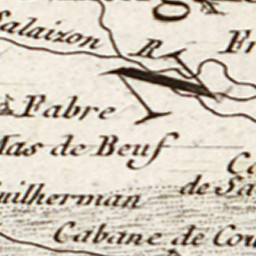 Salaizon
R
Fabre
Mas de Beuf
uilherman
de Sa
Cabane de Cou